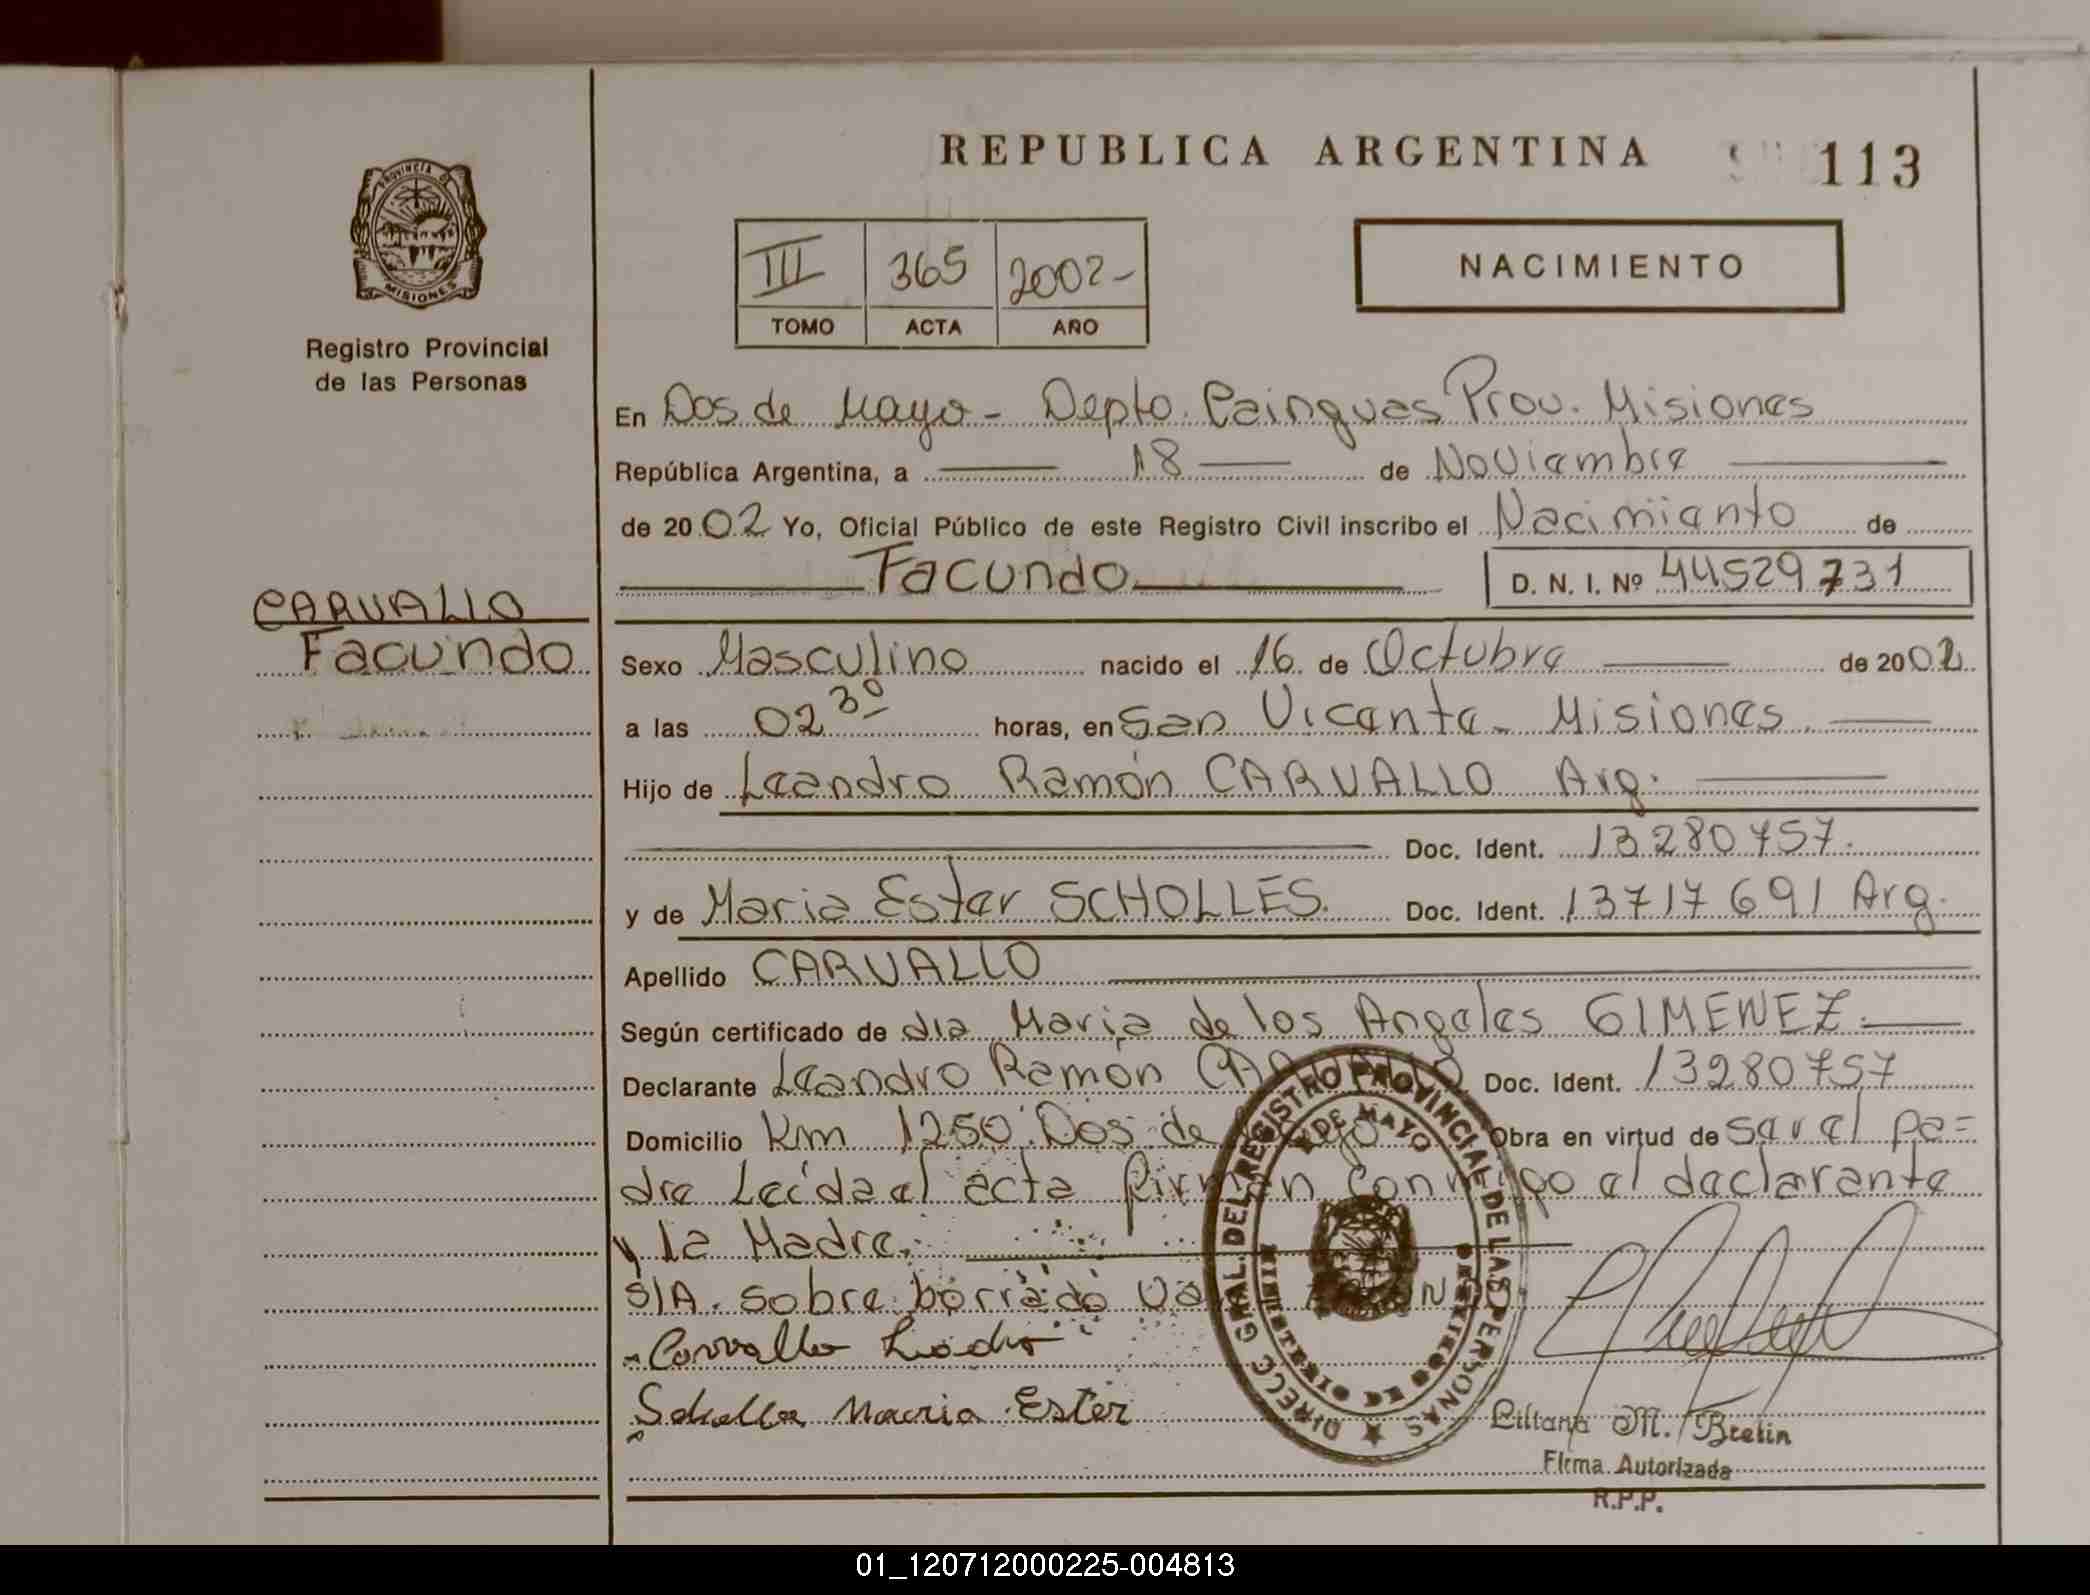 REPUBLICA ARGENTINA
113
PROVINCIA DE
MISIONES
Registro Provincial
de las Personas
III 365 2002-
TOMO ACTA AÑO
NACIMIENTO
En Dos de Mayo - Depto. Cainguas Prov. Misiones
República Argentina, a 18 de Noviembre
de 2002 Yo, Oficial Público de este Registro Civil inscribo el Nacimiento de
Facundo D. N. I. Nº 44529731
CARVALLO
Facundo
Sexo Masculino nacido el 16 de Octubre de 2002
a las 02 30 horas, en San Vicente - Misiones.
Hijo de Leandro Ramón CARVALLO Arg.
Doc. Ident. 13280757.
y de Maria Ester SCHOLLES. Doc. Ident. 13717691 Arg.
Apellido CARVALLO
Según certificado de dra Maria de los Angeles GIMENEZ.
Declarante Leandro Ramón CARVALLO Doc. Ident. 13280757
Domicilio Km 1250 Dos de Mayo Obra en virtud de ser el pa=
dre Leída el acta firman conmigo el declarante
y la Madre.
S/A. sobre borrado
Carvallo
Maria Ester
DIRECC. GRAL. DEL REGISTRO PROVINCIAL DE LAS PERSONAS
2 DE MAYO
Liliana M. Bretin
Firma Autorizada
R.P.P.
01_120712000225-004813